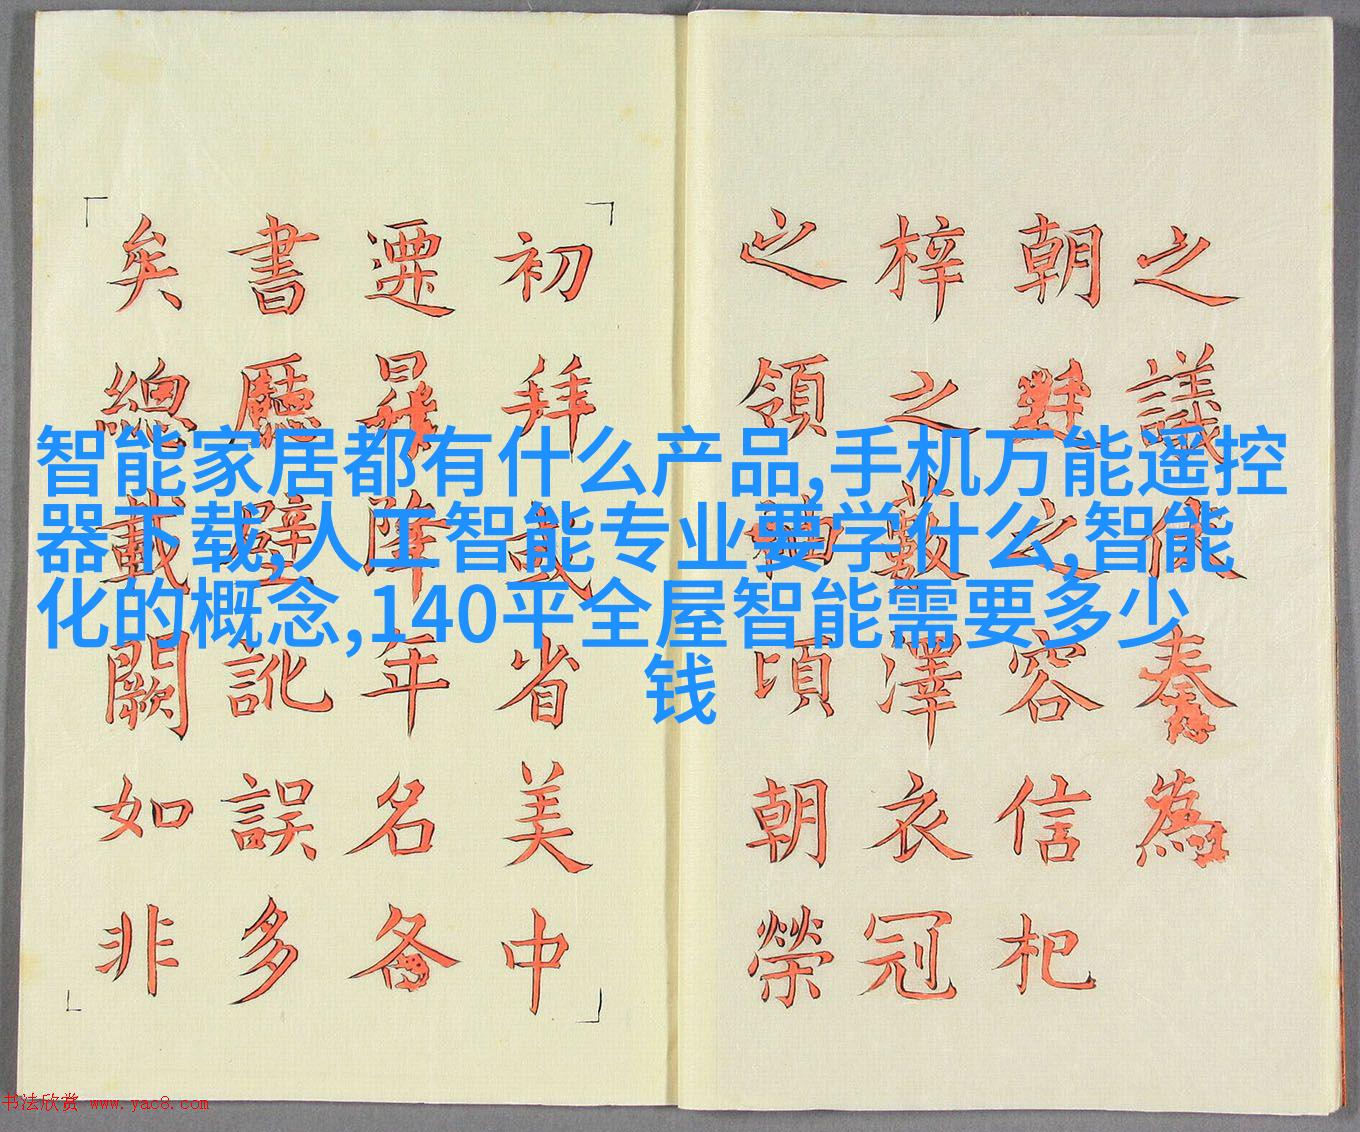 智能家居都有什么产品,手机万能遥控
器下载,人工智能专业要学什么,智能
化的概念,140平全屋智能需要多少
钱
之議依奏為
朝之容信杞
梓之藪澤衣冠
之領袖頃朝榮
初拜或省美中
遷降年名
書廳壁訛誤多
矣總載闕如非
书法欣赏 www.yac8.com